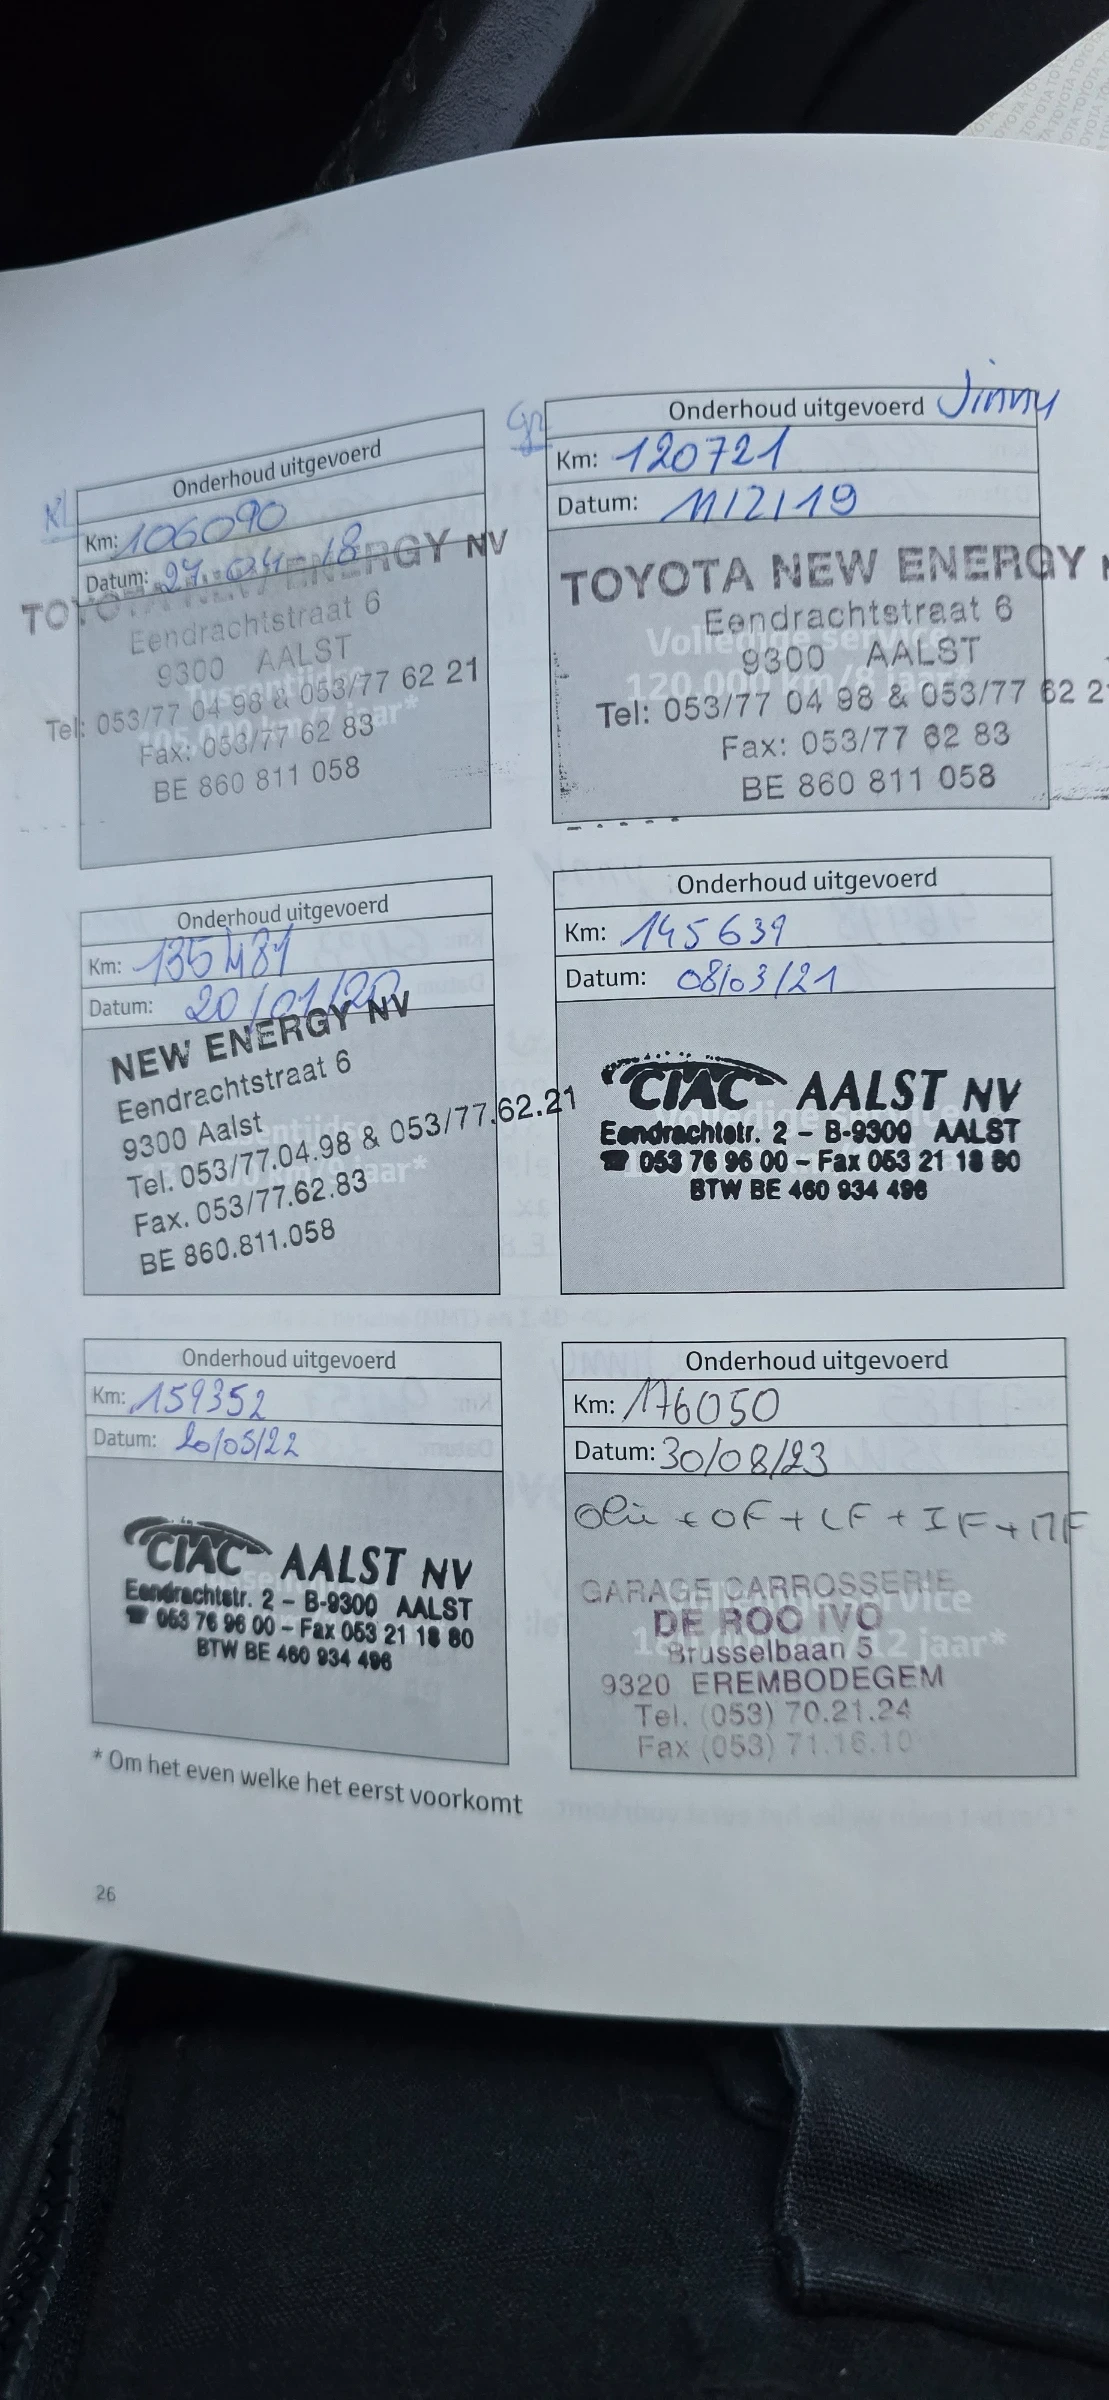 TOYOTA TOYOTA TOYOTA
Kl
Onderhoud uitgevoerd
Km: 106090
Datum: 27-04-18
TOYOTA NEW ENERGY NV
Eendrachtstraat 6
9300 AALST
Tussentijdse
Tel: 053/77 04 98 & 053/77 62 21
105.000 km/7 jaar*
Fax: 053/77 62 83
BE 860 811 058
Gr
Onderhoud uitgevoerd Jinny
Km: 120721
Datum: 11/2/19
TOYOTA NEW ENERGY N
Eendrachtstraat 6
Volledige service
9300 AALST
120.000 km/8 jaar*
Tel: 053/77 04 98 & 053/77 62 2
Fax: 053/77 62 83
BE 860 811 058
Onderhoud uitgevoerd
Km: 135481
Datum: 20/01/20
NEW ENERGY NV
Eendrachtstraat 6
9300 Aalst
Tel. 053/77.04.98 & 053/77.62.21
Fax. 053/77.62.83
BE 860.811.058
Onderhoud uitgevoerd
Km: 145639
Datum: 08/03/21
CIAC AALST NV
Eendrachtstr. 2 – B-9300 AALST
☎ 053 76 96 00 – Fax 053 21 18 80
BTW BE 460 934 496
Onderhoud uitgevoerd
Km: 159352
Datum: 20/05/22
CIAC AALST NV
Eendrachtstr. 2 – B-9300 AALST
☎ 053 76 96 00 – Fax 053 21 18 80
BTW BE 460 934 496
Onderhoud uitgevoerd
Km: 176050
Datum: 30/08/23
Olie + OF + LF + IF + MF
GARAGE CARROSSERIE
DE ROO IVO
Brusselbaan 5
9320 EREMBODEGEM
Tel. (053) 70.21.24
Fax (053) 71.16.10
* Om het even welke het eerst voorkomt
26